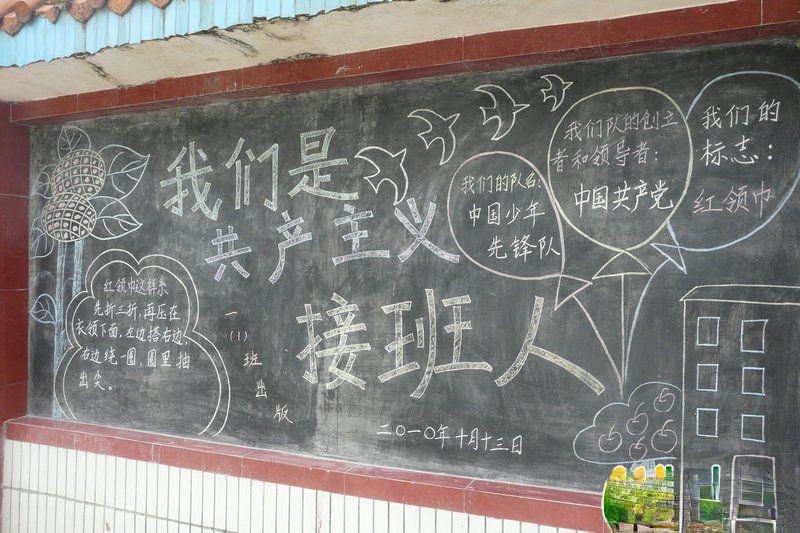 我们是
共产主义
接班人
红领巾这样系
先折三折,再压在
衣领下面,左边搭右边,
右边绕一圈,圈里抽
出尖。
一
(1)
班
出
版
二〇一〇年十月十三日
我们的队名:
中国少年
先锋队
我们队的创立
者和领导者:
中国共产党
我们的
标志:
红领巾